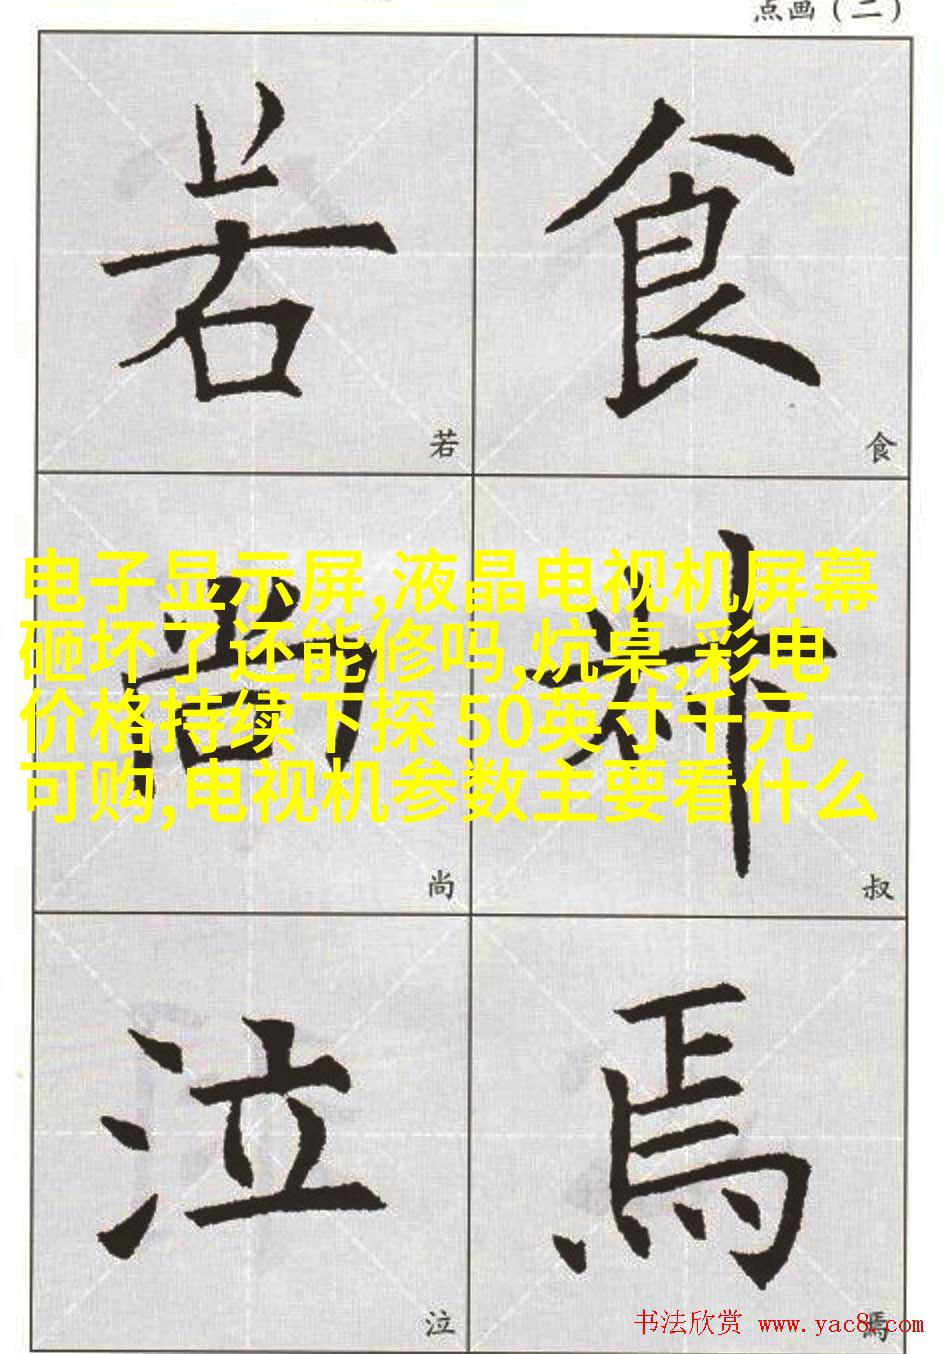 点画（二）
若
食
若
食
电子显示屏,液晶电视机屏幕
砸坏了还能修吗,炕桌,彩电
价格持续下探 50英寸千元
可购,电视机参数主要看什么
尚
叔
尚
叔
泣
焉
泣
焉
书法欣赏 www.yac8.com